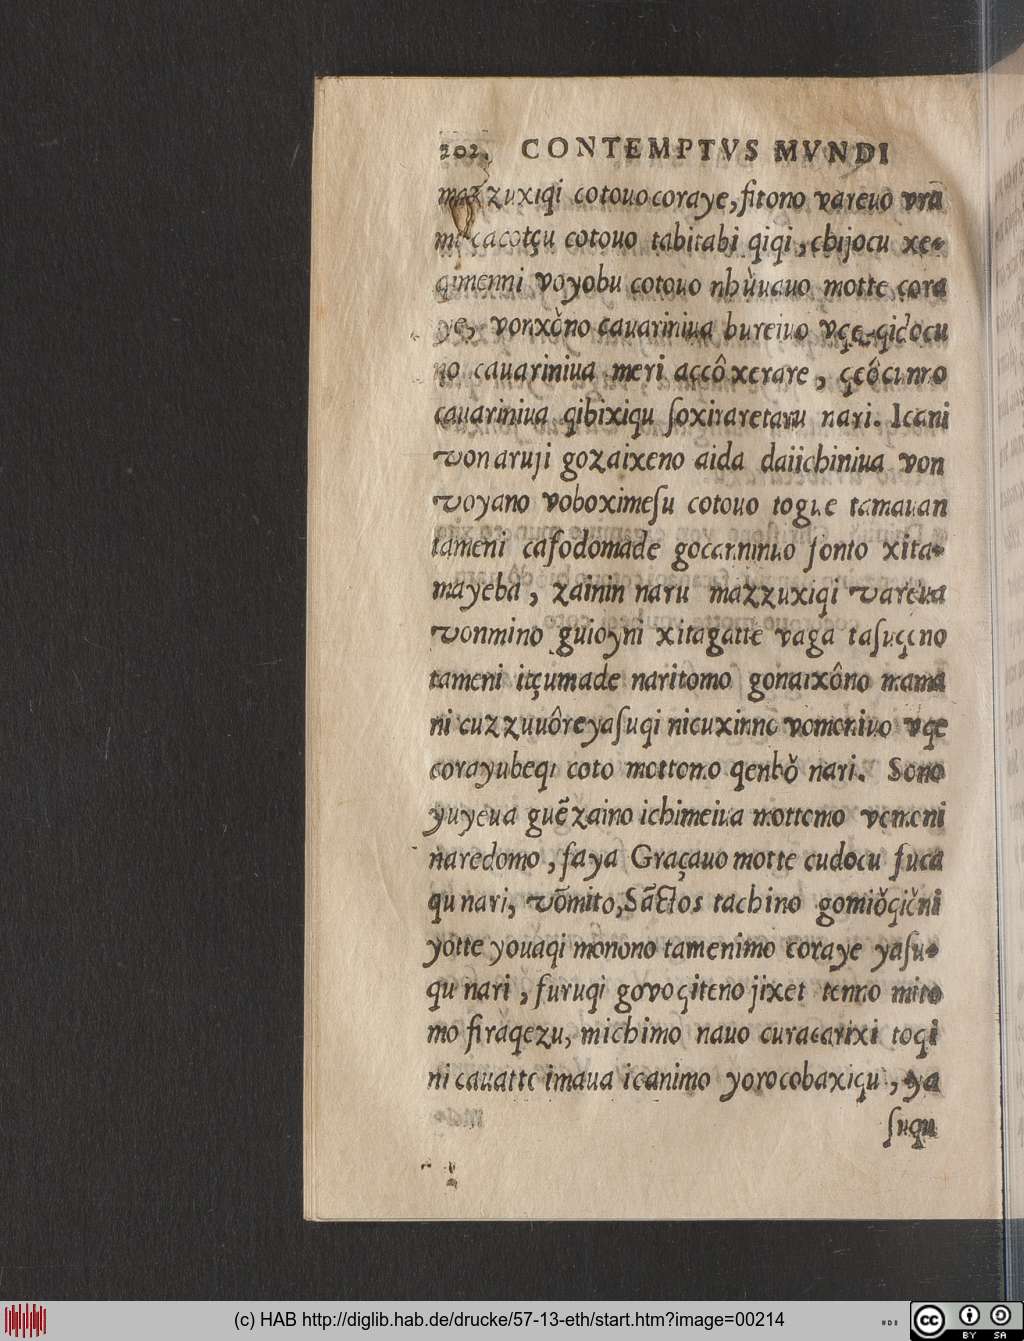 202. CONTEMPTVS MVNDI
mazzuxiqi cotouo coraye, fitono vareuo vrā
mi cacotçu cotouo tabitabi qiqi, chijocu xe-
qimenni voyobu cotouo nhǔuauo motte cora
ye, vonxǒno cauariniua bureiuo vqe, qidocu
no cauariniua meri accô xerare, qeôcunno
cauariniua qibixiqu ſoxiraretaru nari. Icani
vonaruji gozaixeno aida daiichiniua von
voyano voboximeſu cotouo togue tamauan
tameni cafodomade gocanninuo ſonto xita-
mayeba, zainin naru mazzuxiqi vareua
vonmino guioyni xitagatte vaga tasuqeno
tameni itçumade naritomo gonaixôno mama
ni cuzzuuôre yaſuqi nicuxinno vomoniuo vqe
corayubeqi coto mottomo qenbǒ nari. Sono
yuyeua guēzaino ichimeiua mottomo vomoni
naredomo, ſaya Graçauo motte cudocu fuca
qu nari, vōmito, Sāctos tachino gomiǒqiǒni
yotte youaqi monono tamenimo coraye yaſu-
qu nari, furuqi govoqiteno jixet tenno mito
mo firaqezu, michimo nauo curacarixi toqi
ni cauatte imaua icanimo yorocobaxiqu, ya
ſuqu
(c) HAB http://diglib.hab.de/drucke/57-13-eth/start.htm?image=00214
cc BY SA